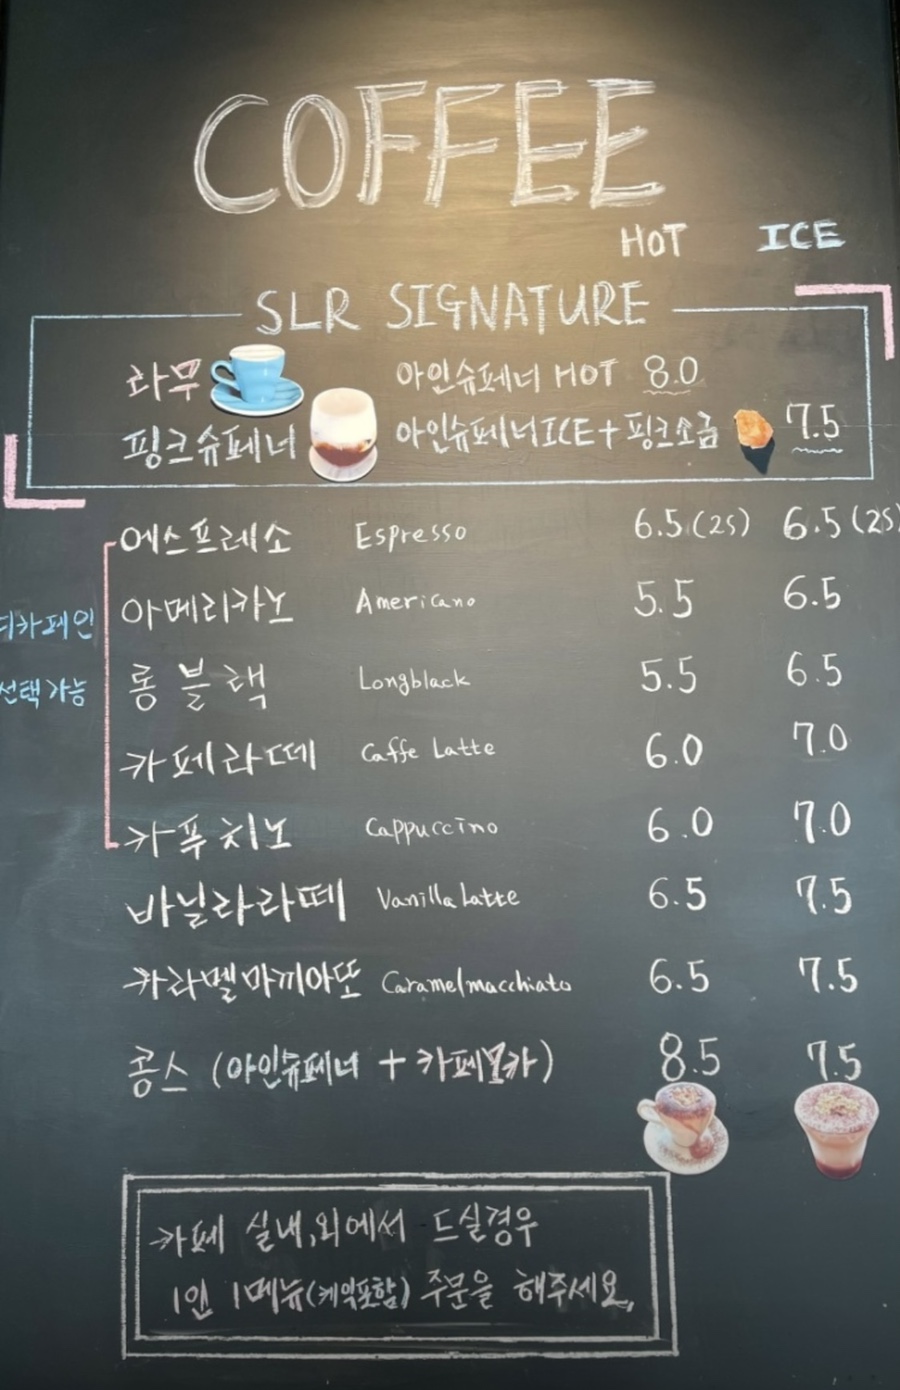 COFFEE
HOT ICE
SLR SIGNATURE
라무 아인슈페너 HOT 8.0
핑크슈페너 아인슈페너ICE+핑크소금 7.5
에스프레소 Espresso 6.5(2S) 6.5(2S)
아메리카노 Americano 5.5 6.5
디카페인
선택가능
롱블랙 Longblack 5.5 6.5
카페라떼 Caffe Latte 6.0 7.0
카푸치노 Cappuccino 6.0 7.0
바닐라라떼 Vanilla Latte 6.5 7.5
카라멜마끼아또 Caramelmacchiato 6.5 7.5
콩스 (아인슈페너 + 카페모카) 8.5 7.5
카페 실내,외에서 드실경우
1인 1메뉴(케익포함) 주문을 해주세요.